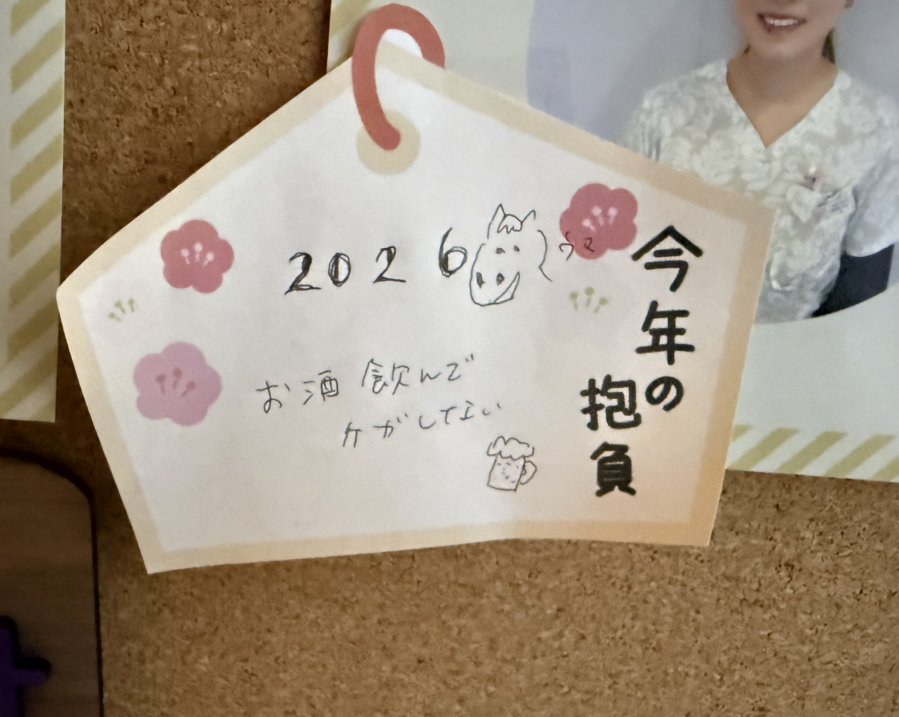 今年の抱負
2026 ウマ
お酒飲んで
ケガしない